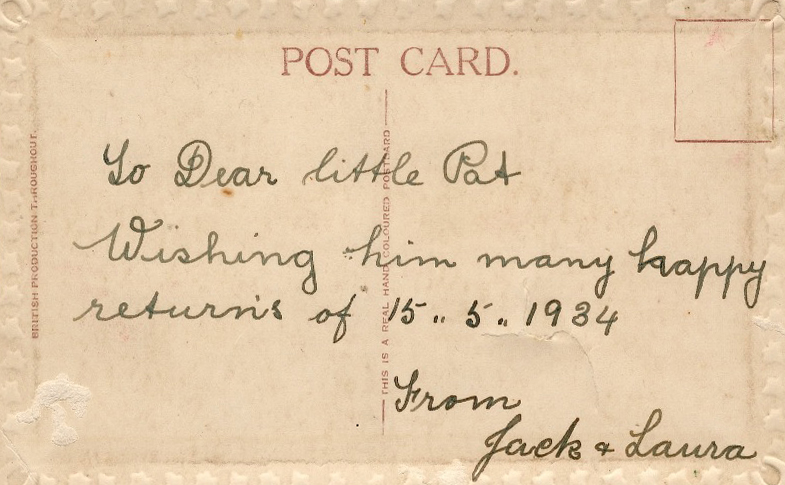 POST CARD.
BRITISH PRODUCTION THROUGHOUT.
THIS IS A REAL HAND COLOURED POSTCARD
To Dear little Pat
Wishing him many happy
returns of 15.. 5.. 1934
From
Jack & Laura